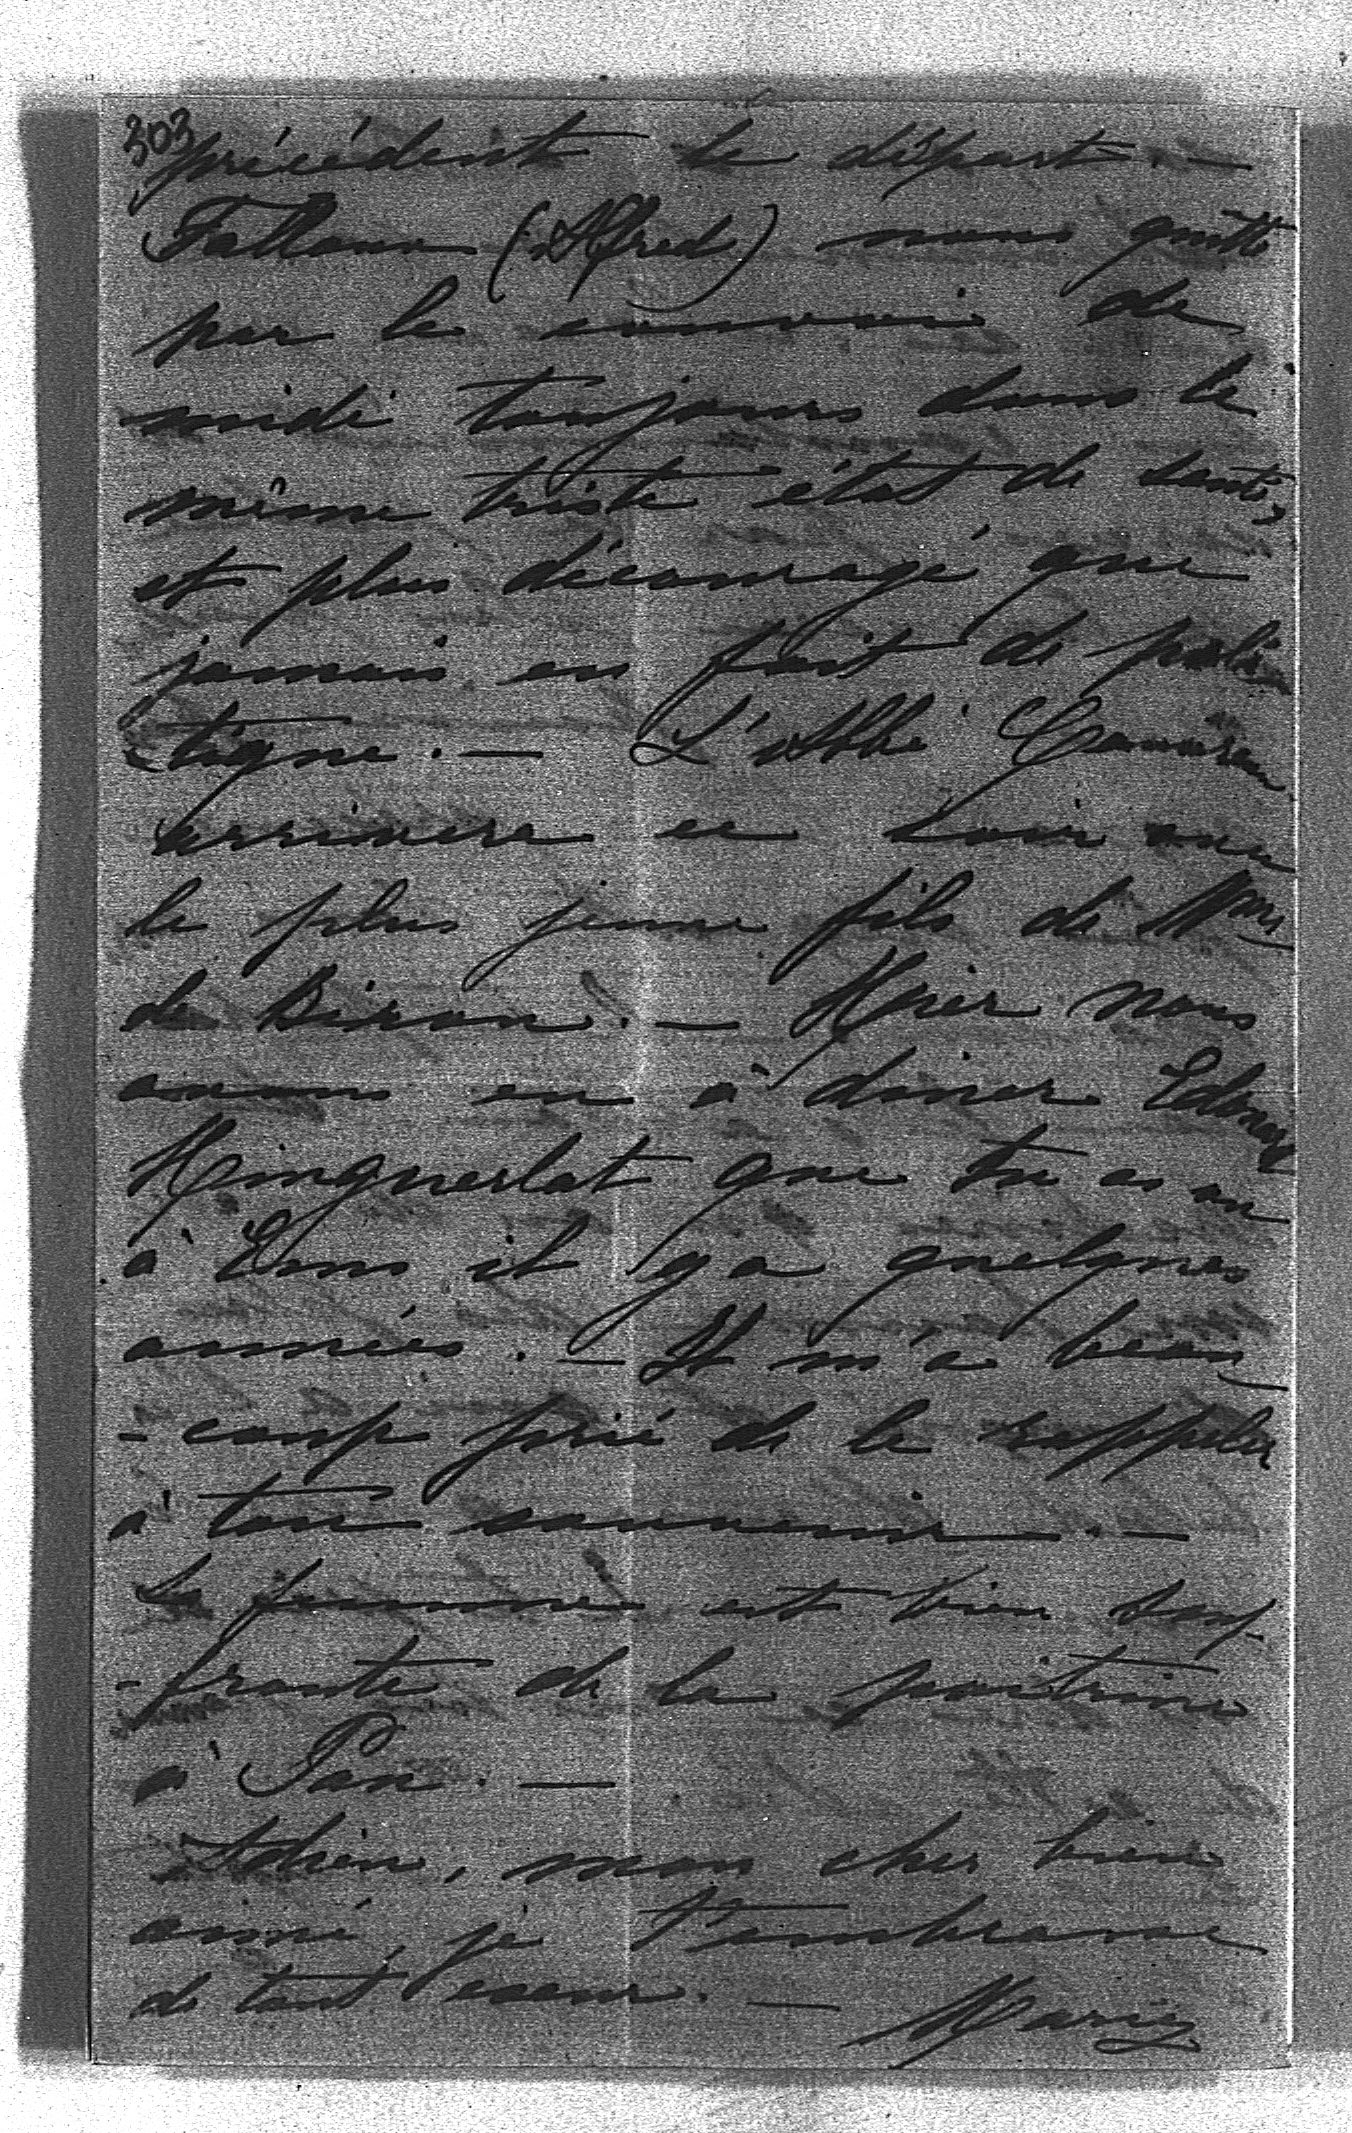 303
précèdent le départ. —
Falloux (Alfred) nous quitte
par le convoi de
midi toujours dans le
même triste état de santé,
et plus découragé que
jamais en fait de poli-
-tique. — L'Abbé
arrivera ce soir avec
le plus jeune fils de Mme
de Biron. — Hier nous
avons eu à diner Edmond
que tu as vu
à Ems il y a quelques
années. — Il m'a beau-
-coup prié de le rappeler
à ton souvenir. —
Sa femme est bien souf-
-frante de la poitrine
à Pau. —
Adieu, mon cher bien
aimé, je t'embrasse
de tout cœur. — Marie